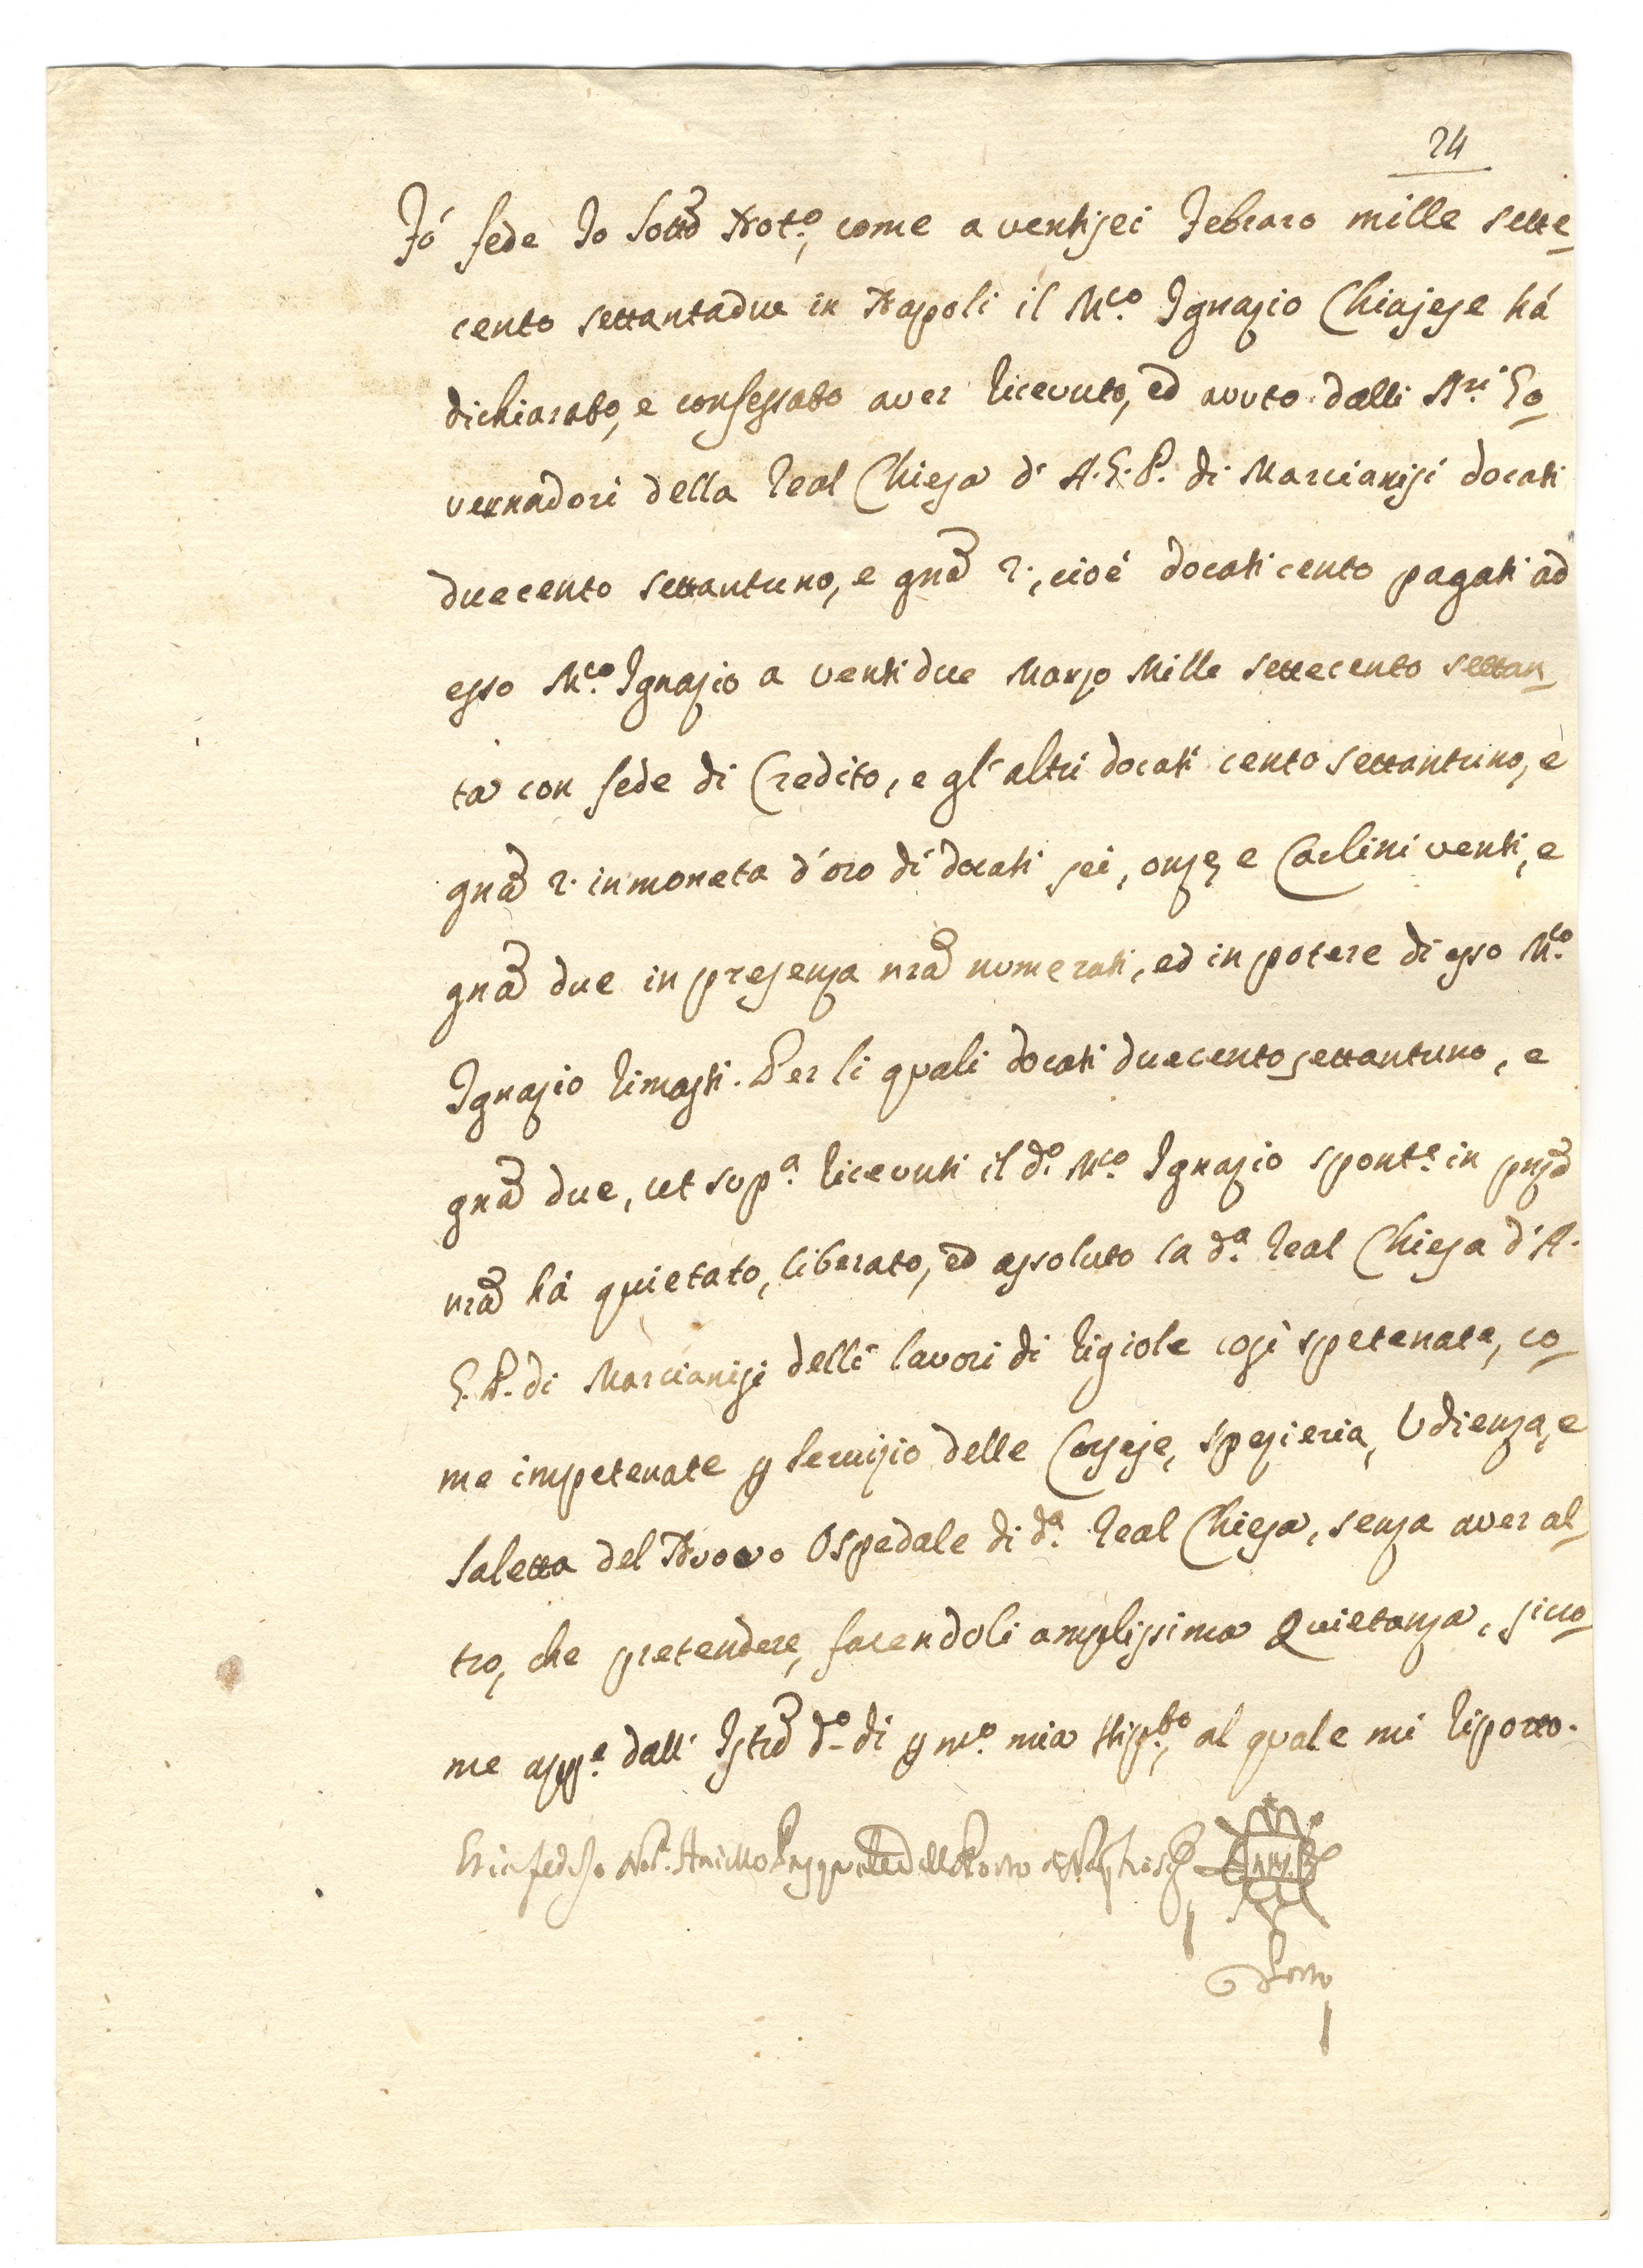 24
Fó fede Io Sotto Not.o, come a ventisei Febraro mille sette
cento settantadue in Napoli il M.co Ignazio Chiajese há
dichiarato, e confessato aver ricevuto, ed avuto dalli Sri. Go
vernadori della Real Chiesa d' A. G. P. di Marcianisi docati
duecento settantuno, e gna 2., cioé docati cento pagati ad
esso M.co Ignazio a venti due Marzo Mille settecento settan
ta con fede di Credito, e gl'altri docati cento settantuno, e
gna 2. in moneta d'oro di docati sei, onze, e Carlini venti, e
gna due in presenza nra numerati, ed in potere di esso M.co
Ignazio rimasti. Per li quali docati duecento settantuno, e
gna due, ut sup.a ricevuti il d.o M.co Ignazio spont.e in pnza
nra há quietato, liberato, ed assoluto la d.a Real Chiesa d'A.
G. P. di Marcianisi delli lavori di rigiole cosi spetenate, co
me impetenate p servizio delle Corseje, spezieria, Udienza, e
Saletta del Nuovo Ospedale di d.a Real Chiesa, senza aver al
tro, che pretendere, facendoli amplissima Quietanza, sicco
me app.e dall' Istro d.o di p m.o mia stip.to, al quale mi riporto.
Not. Aniello Pasquale dello Porto